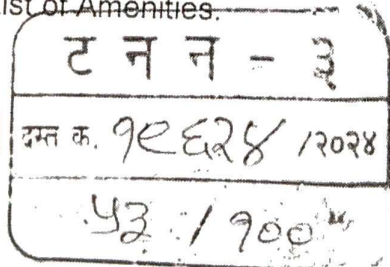 ist of Amenities.
ट न न - ३
दस्त क. १९६२४ /२०२४
५३ / १००